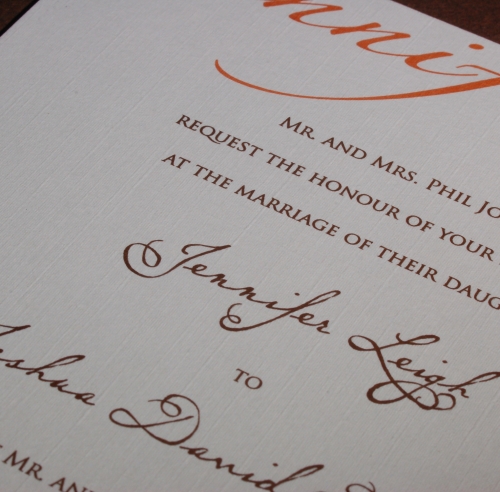 MR. AND MRS. PHIL JO
REQUEST THE HONOUR OF YOUR
AT THE MARRIAGE OF THEIR DAUG
Jennifer Leigh
TO
shua David
MR. AND